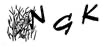 N G K